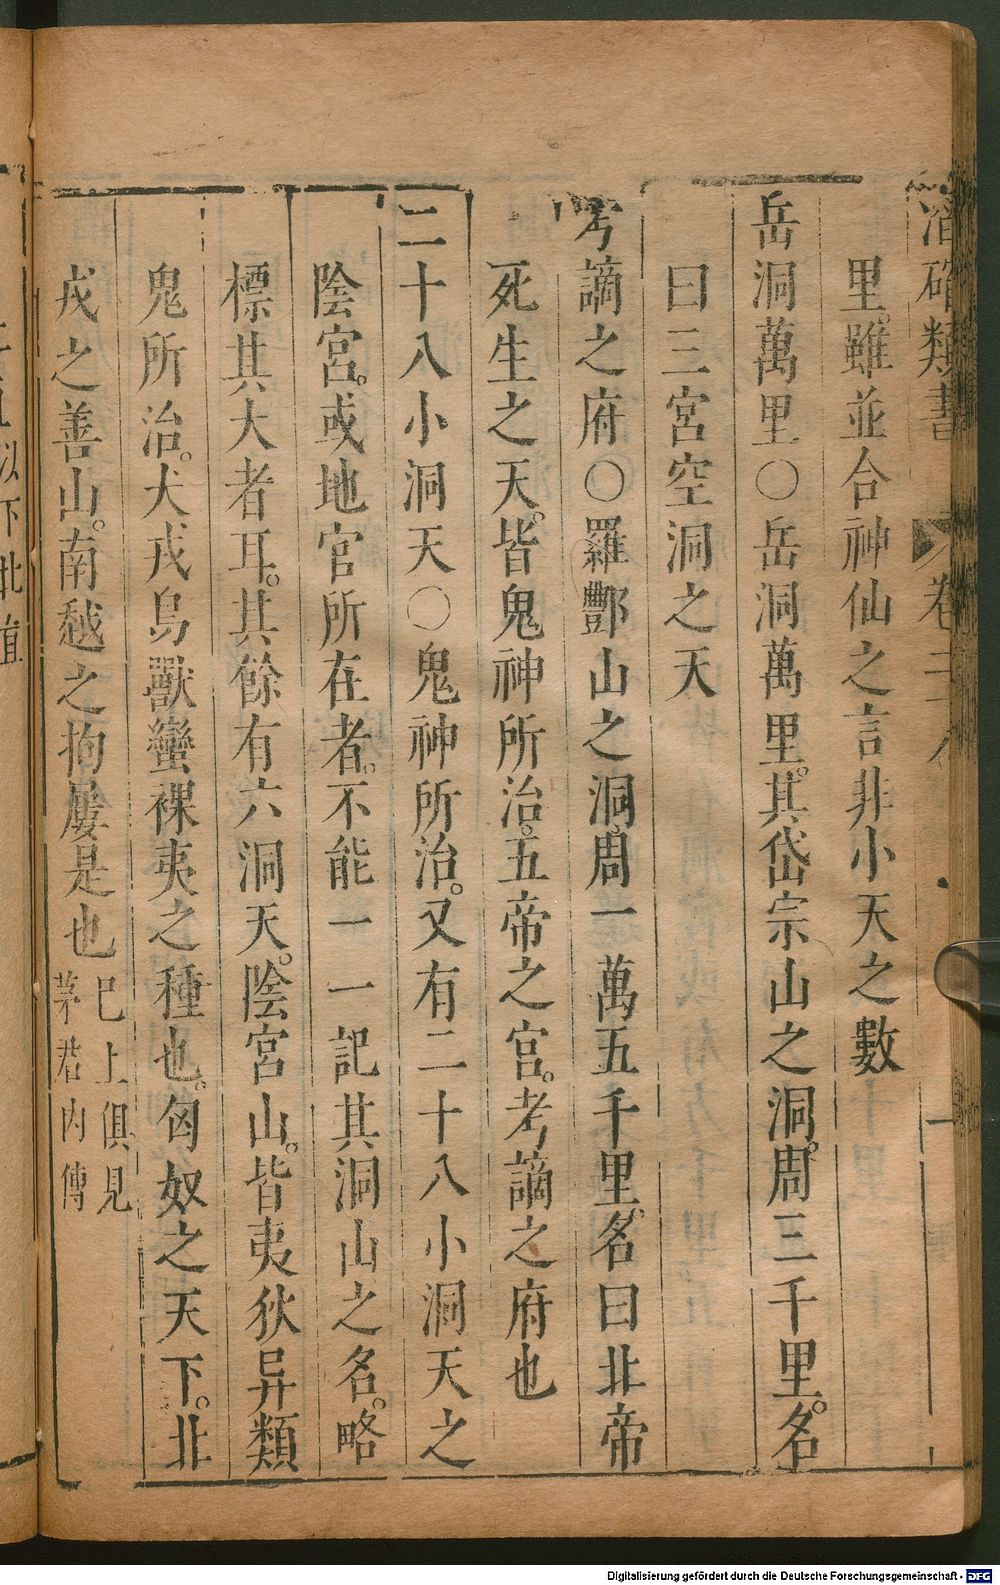 潛確類書 卷三十八 一
里。雖並合神仙之言非小天之數
岳洞萬里○岳洞萬里。其岱宗山之洞。周三千里。名
曰三宮空洞之天
考謫之府○羅酆山之洞。周一萬五千里。名曰北帝
死生之天。皆鬼神所治。五帝之宮。考謫之府也
二十八小洞天○鬼神所治。又有二十八小洞天之
陰宮。或地官所在者。不能一一記其洞山之名。略
標其大者耳。其餘有六洞天。陰宮山。皆夷狄异類
鬼所治。犬戎鳥獸蠻裸夷之種也。匈奴之天下。北
戎之善山。南越之拘屢是也
已上俱見
茅君內傳
以下
Digitalisierung gefördert durch die Deutsche Forschungsgemeinschaft - DFG